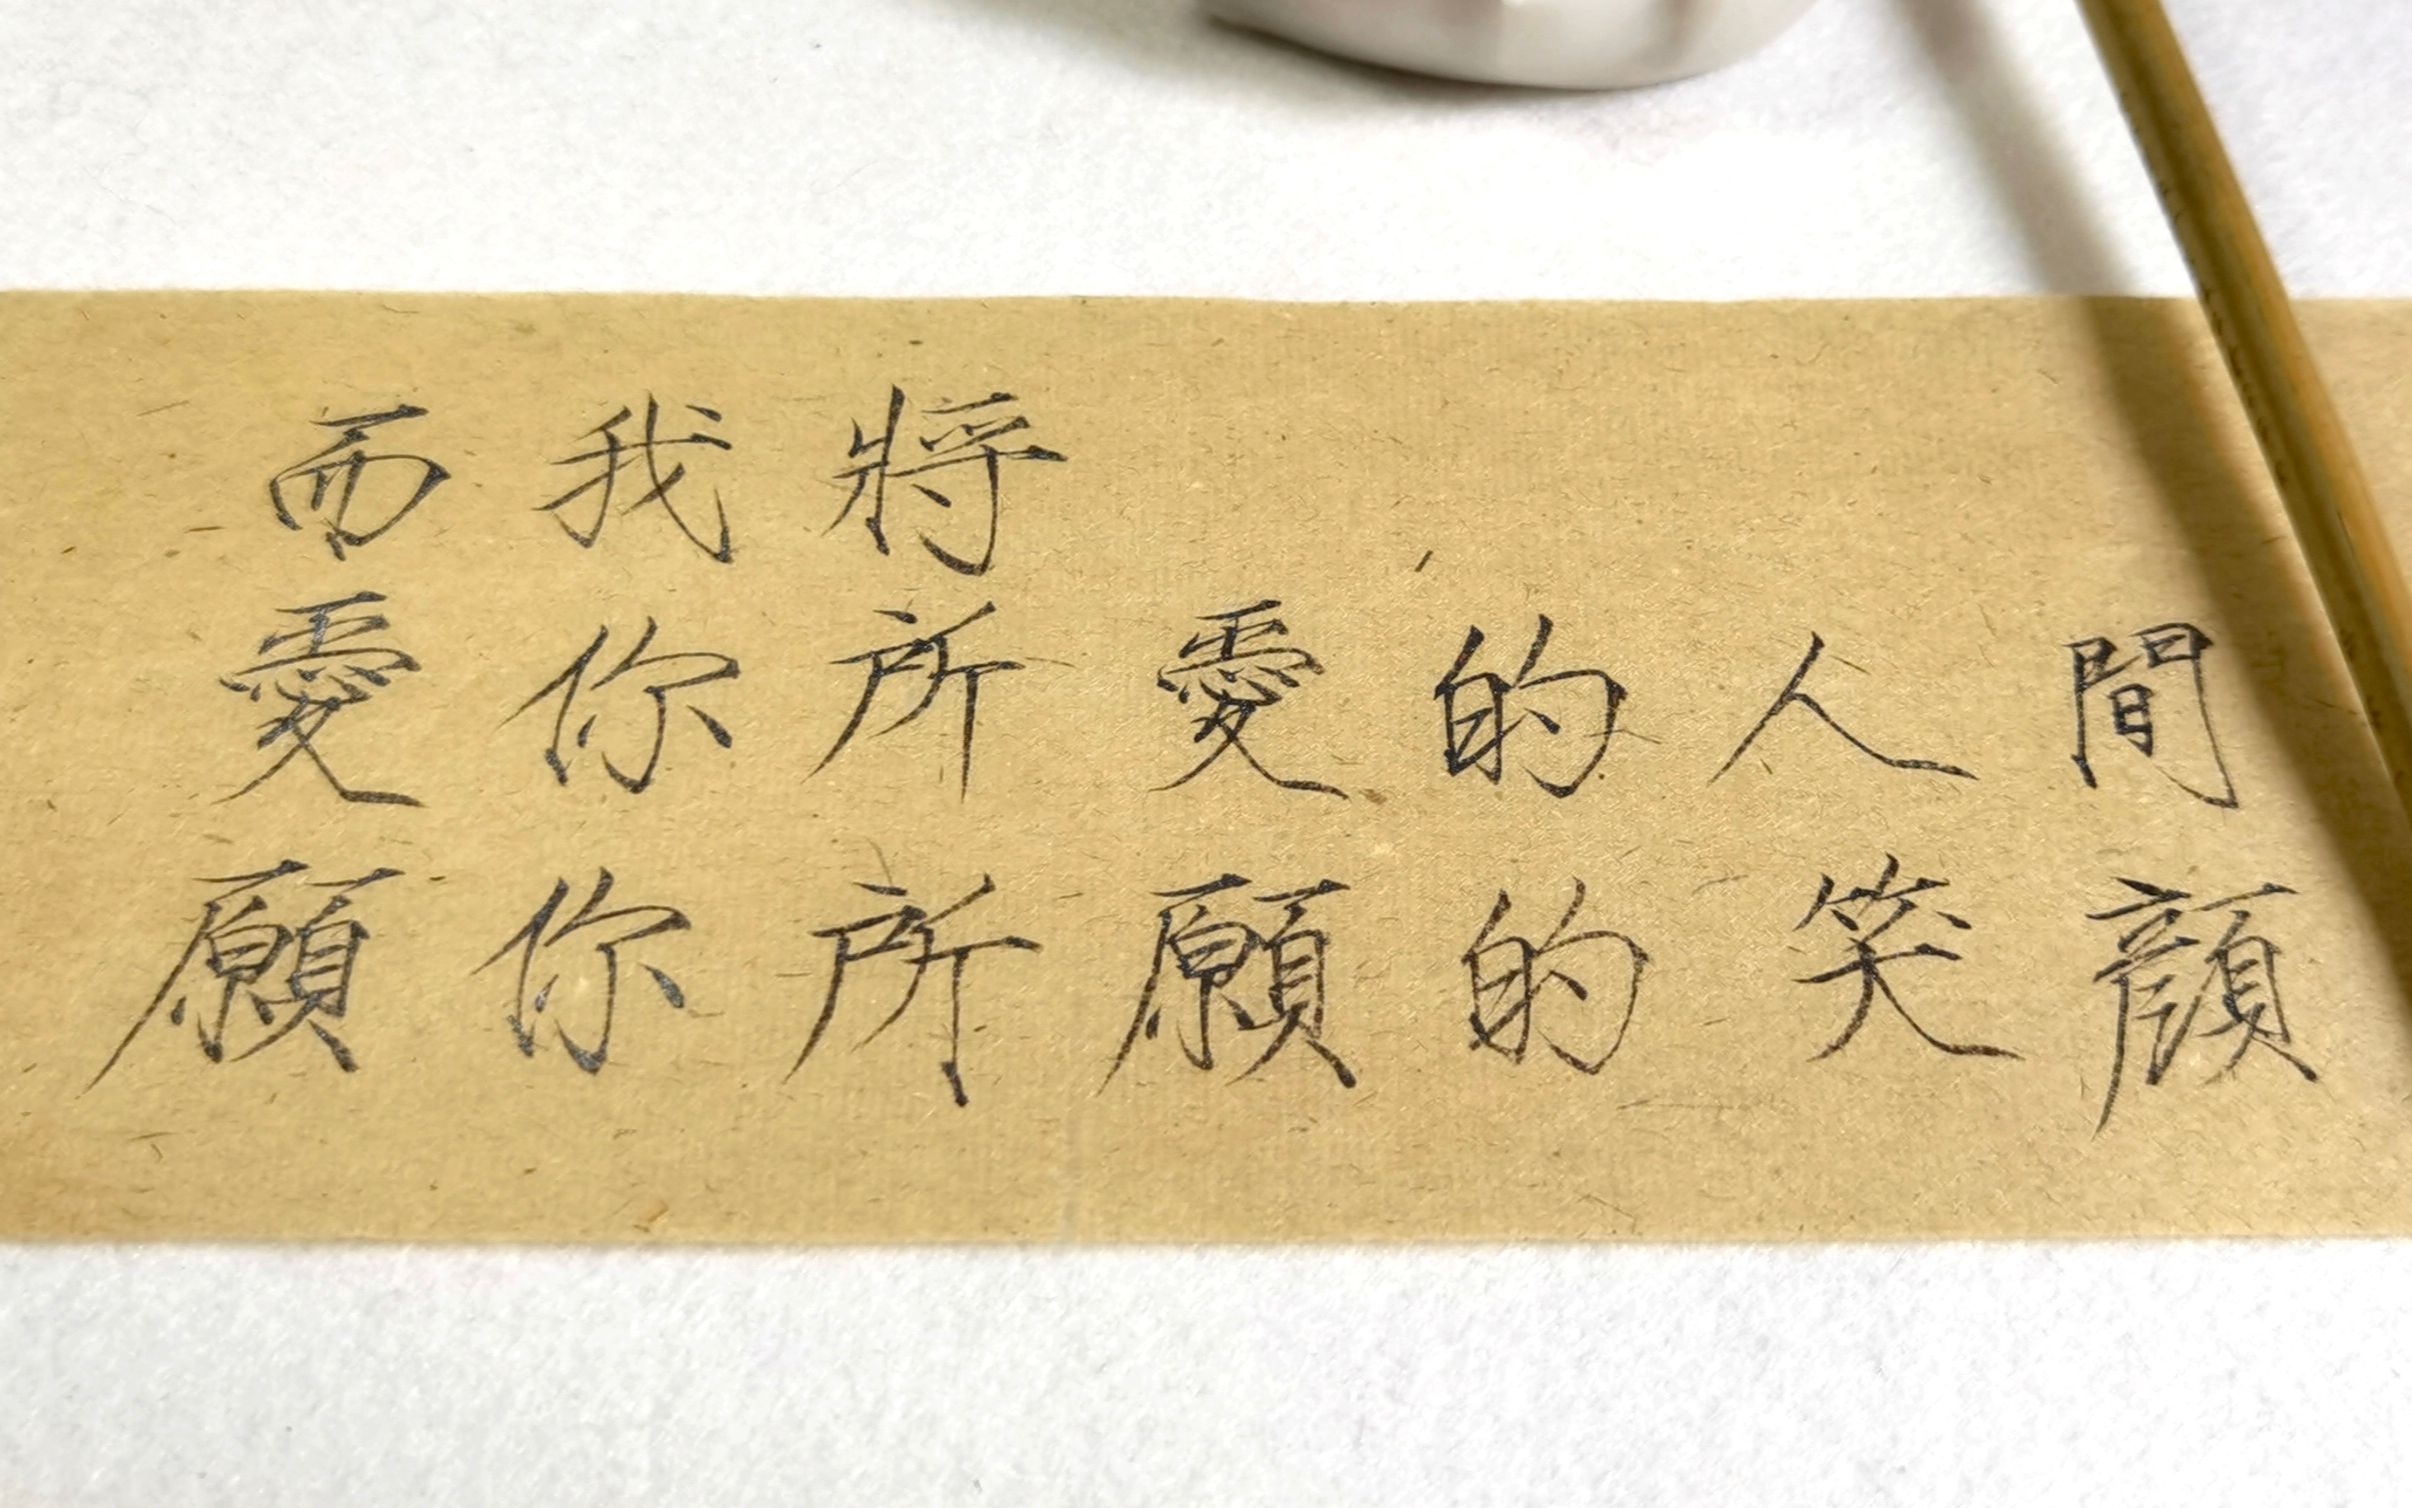 而我將
愛你所愛的人間
願你所願的笑顏